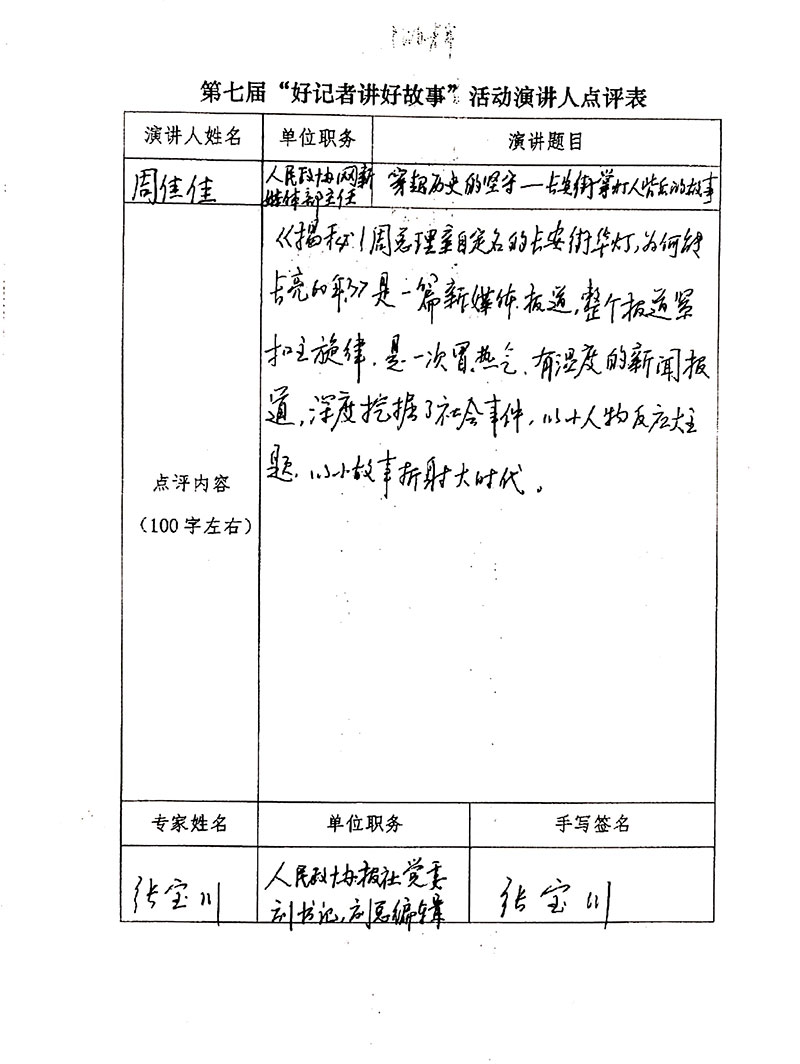 第七届“好记者讲好故事”活动演讲人点评表
演讲人姓名 单位职务 演讲题目
周佳佳 人民政协网新媒体部主任 穿越历史的坚守——长安街掌灯人的故事
点评内容
（100字左右）
《揭秘！周总理亲自定名的长安街华灯，为何能
长亮的》是一篇新媒体报道，整个报道紧
扣主旋律，是一次冒热气、有温度的新闻报
道，深度挖掘了社会事件，以小人物反应大主
题，以小故事折射大时代。
专家姓名 单位职务 手写签名
张宝川 人民政协报社党委
副书记，副总编辑 张宝川